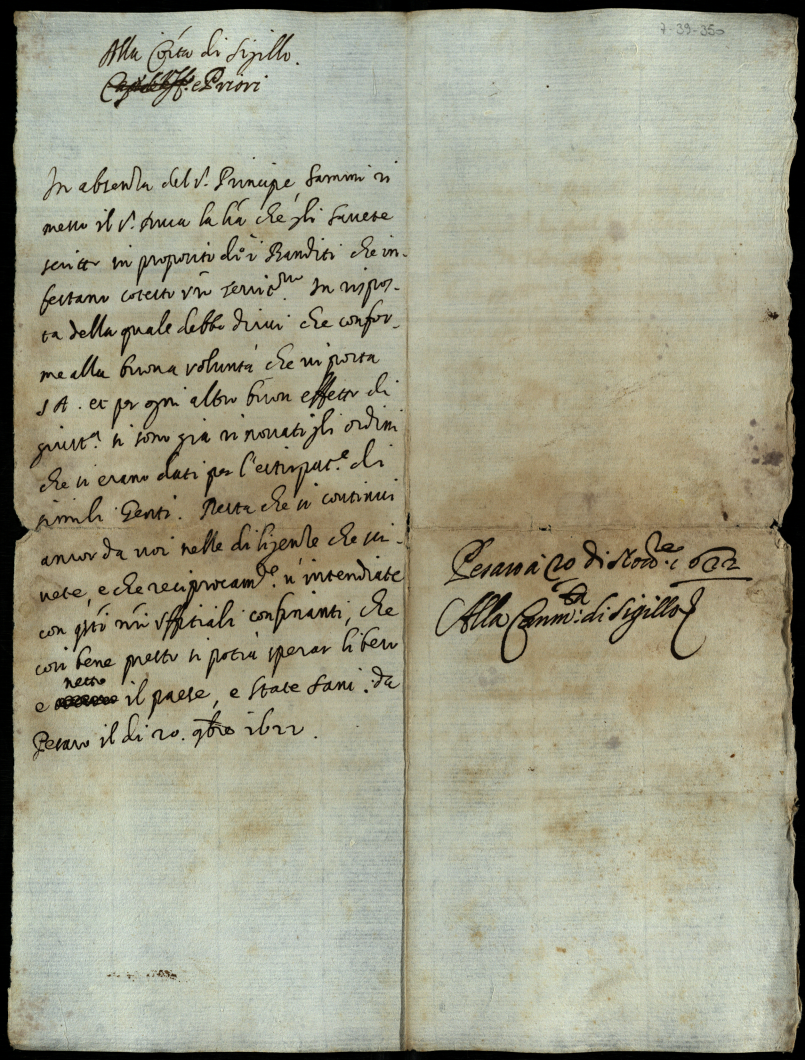 7-39-350
Alla Co͞ità di Sigillo.
e Priori
In absenza del S.r Principe, hammi ri
messo il S.r Duca la l͞ra che gli havete
scritta in proposito di i Banditi che in-
festano cotesto v͞ro In rispos-
ta della quale debbo dirvi che confor-
me alla buona voluntà che vi porta
S A. et per ogni altro buon effetto di
giust.a si sono già rinovati gli ordini
che si erano dati per l'estirpat.e di
simili Genti. Resta che si continui
ancor da voi nelle diligenze che sri-
vete, e che reciprocam.te v'intendiate
con q͞sti n͞ri Uffitiali confinanti, che
così bene presto si potrà sperar libero
e netto il paese, e state sani. da
Pesaro il di 20. 9bre 1622.
Pesaro a 20 di Nov.re 1622
Alla Comm.tà di Sigillo